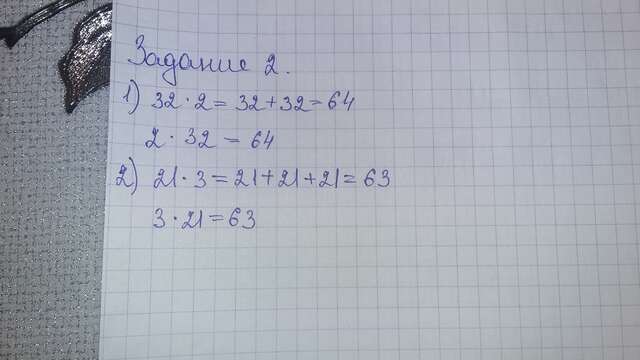 Задание 2.
1) 32·2=32+32=64
2·32=64
2) 21·3=21+21+21=63
3·21=63